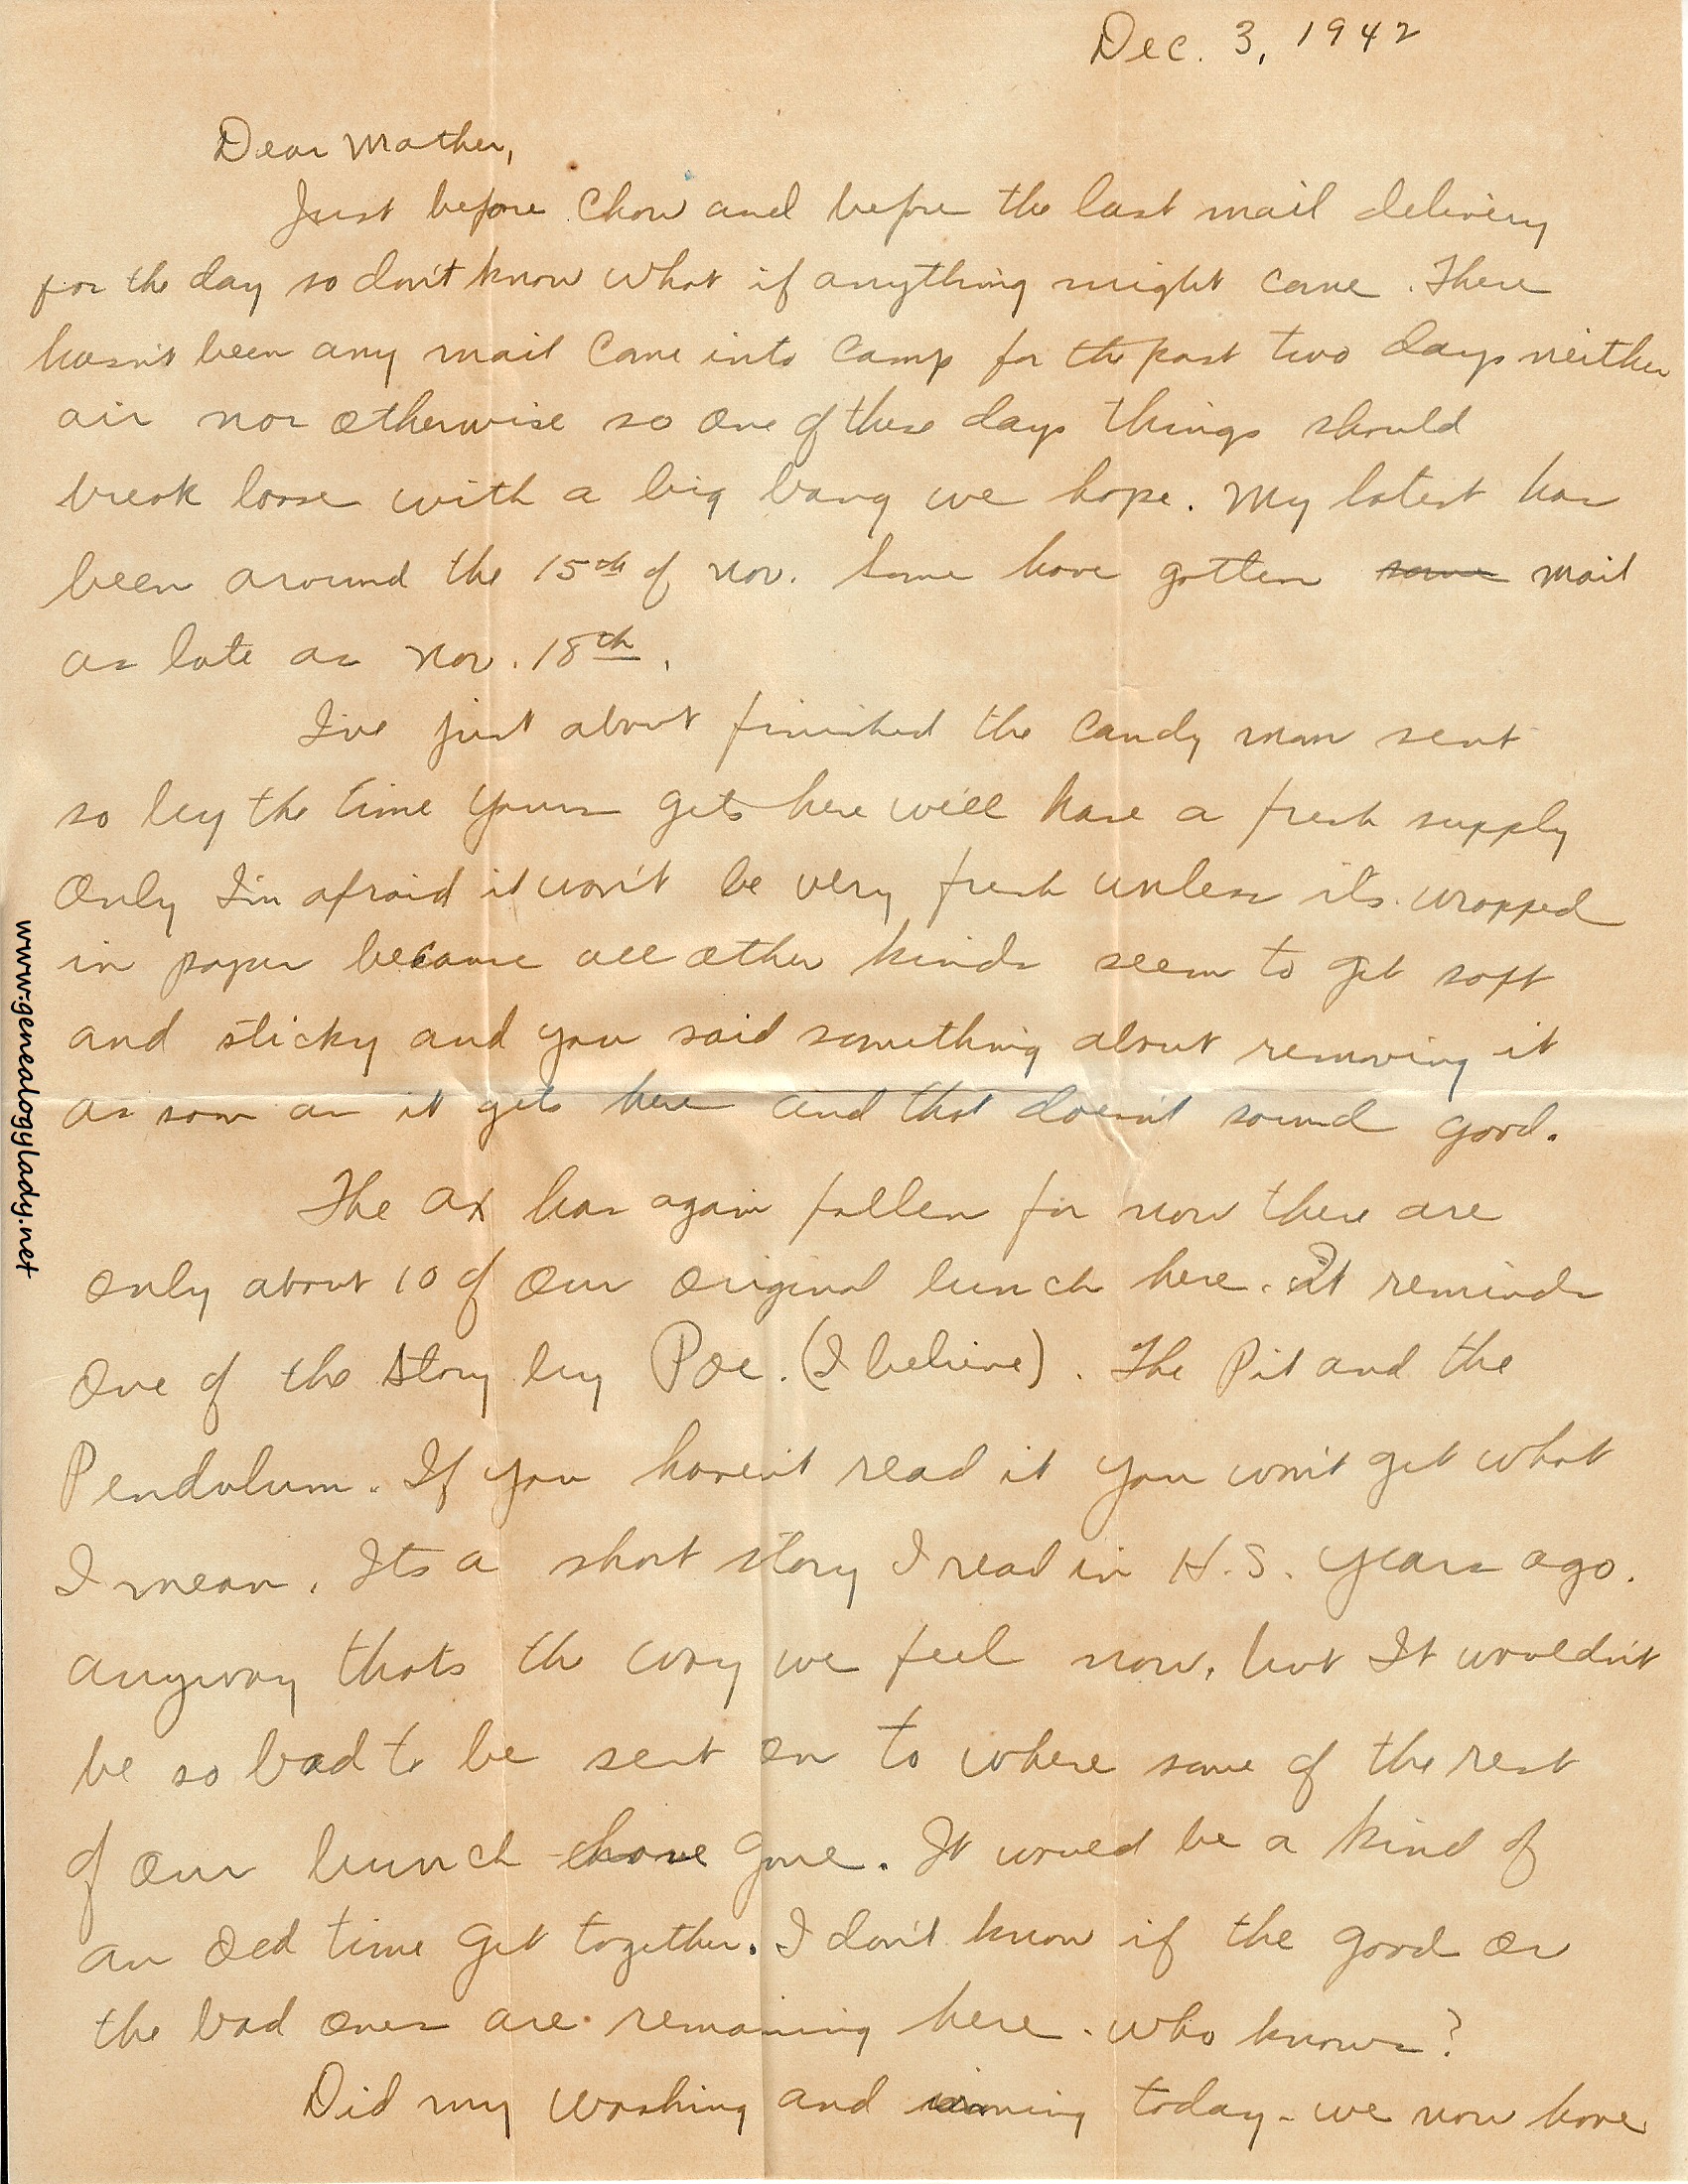 Dec. 3, 1942
Dear Mother,
Just before chow and before the last mail delivery
for the day so don't know what if anything might come. There
hasn't been any mail come into camp for the past two days neither
air nor otherwise so one of these days things should
break loose with a big bang we hope. My latest has
been around the 15th of Nov. Some have gotten some mail
as late as Nov. 18th.
I've just about finished the candy mom sent
so by the time yours gets here we'll have a fresh supply
Only I'm afraid it won't be very fresh unless its wrapped
in paper because all other kinds seem to get soft
and sticky and you said something about removing it
as soon as it gets here and that doesn't sound good.
The ax has again fallen for now there are
only about 10 of our original bunch here. It reminds
one of the story by Poe. (I believe). The Pit and the
Pendulum. If you haven't read it you won't get what
I mean. Its a short story I read in H.S. years ago.
anyway thats the way we feel now, but It wouldn't
be so bad to be sent on to where some of the rest
of our bunch have gone. It would be a kind of
an old time get together. I don't know if the good or
the bad ones are remaining here. who knows?
Did my washing and ironing today - we now have
www.genealogylady.net